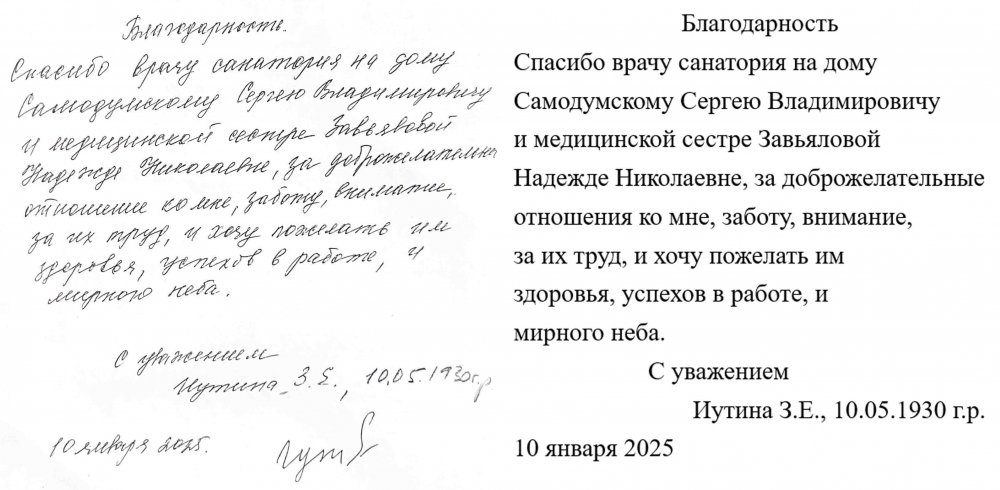 Благодарность.
Спасибо врачу санатория на дому
Самодумскому Сергею Владимировичу
и медицинской сестре Завьяловой
Надежде Николаевне, за доброжелательные
отношение ко мне, заботу, внимание,
за их труд, и хочу пожелать им
здоровья, успехов в работе, и
мирного неба.
С уважением
Иутина З.Е., 10.05.1930 г.р
10 января 2025.
Благодарность
Спасибо врачу санатория на дому
Самодумскому Сергею Владимировичу
и медицинской сестре Завьяловой
Надежде Николаевне, за доброжелательные
отношения ко мне, заботу, внимание,
за их труд, и хочу пожелать им
здоровья, успехов в работе, и
мирного неба.
С уважением
Иутина З.Е., 10.05.1930 г.р.
10 января 2025